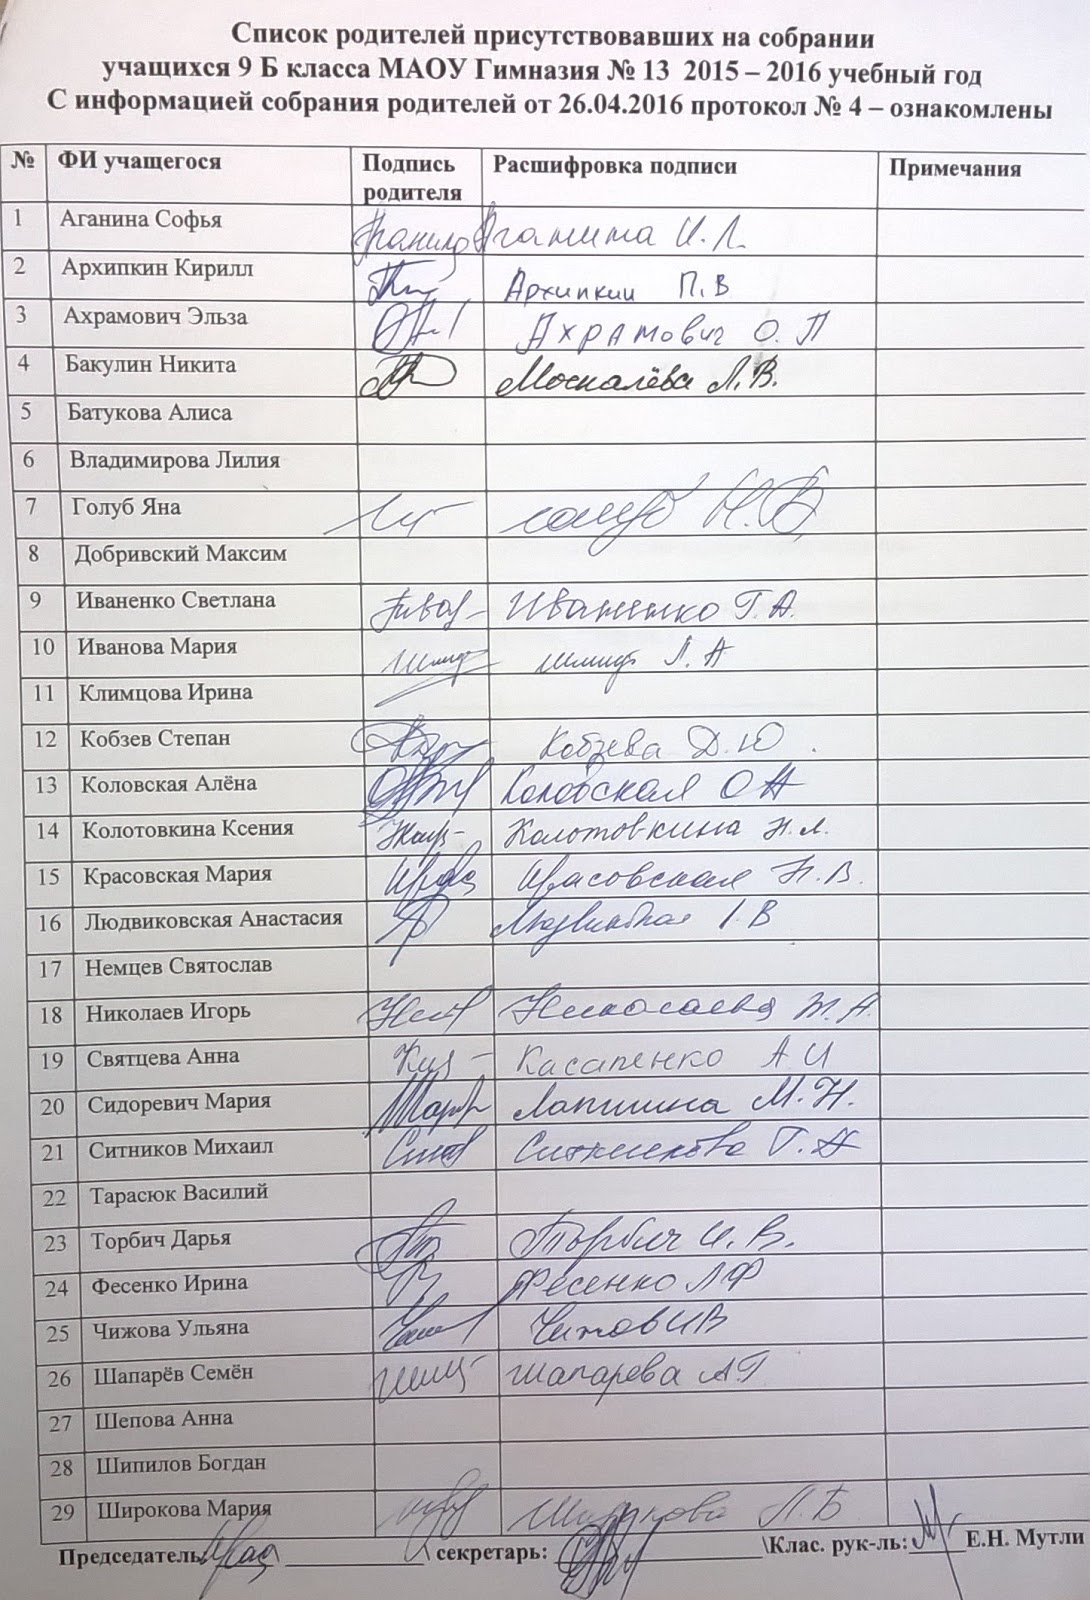 Список родителей присутствовавших на собрании
учащихся 9 Б класса МАОУ Гимназия № 13 2015 – 2016 учебный год
С информацией собрания родителей от 26.04.2016 протокол № 4 – ознакомлены
№ ФИ учащегося Подпись родителя Расшифровка подписи Примечания
1 Аганина Софья Аганина И.Л.
2 Архипкин Кирилл Архипкин П.В
3 Ахрамович Эльза Ахрамович О.П
4 Бакулин Никита Москалёва Л.В.
5 Батукова Алиса
6 Владимирова Лилия
7 Голуб Яна Голуб Н.В
8 Добривский Максим
9 Иваненко Светлана Иваненко Г.А.
10 Иванова Мария Л.А
11 Климцова Ирина
12 Кобзев Степан Кобзева Д.Ю.
13 Коловская Алёна Коловская О Н
14 Колотовкина Ксения Колотовкина Н.Л.
15 Красовская Мария Красовская Н.В.
16 Людвиковская Анастасия
17 Немцев Святослав
18 Николаев Игорь Николаева Ж.А.
19 Святцева Анна Касапенко А И
20 Сидоревич Мария Лапшина М.Н.
21 Ситников Михаил Ситникова Г.А
22 Тарасюк Василий
23 Торбич Дарья Торбич И.В.
24 Фесенко Ирина Фесенко Л Ф
25 Чижова Ульяна Чижов И В
26 Шапарёв Семён Шапарева А Г
27 Шепова Анна
28 Шипилов Богдан
29 Широкова Мария Широкова Л.Б
Председатель: \ секретарь: \Клас. рук-ль: Е.Н. Мутли